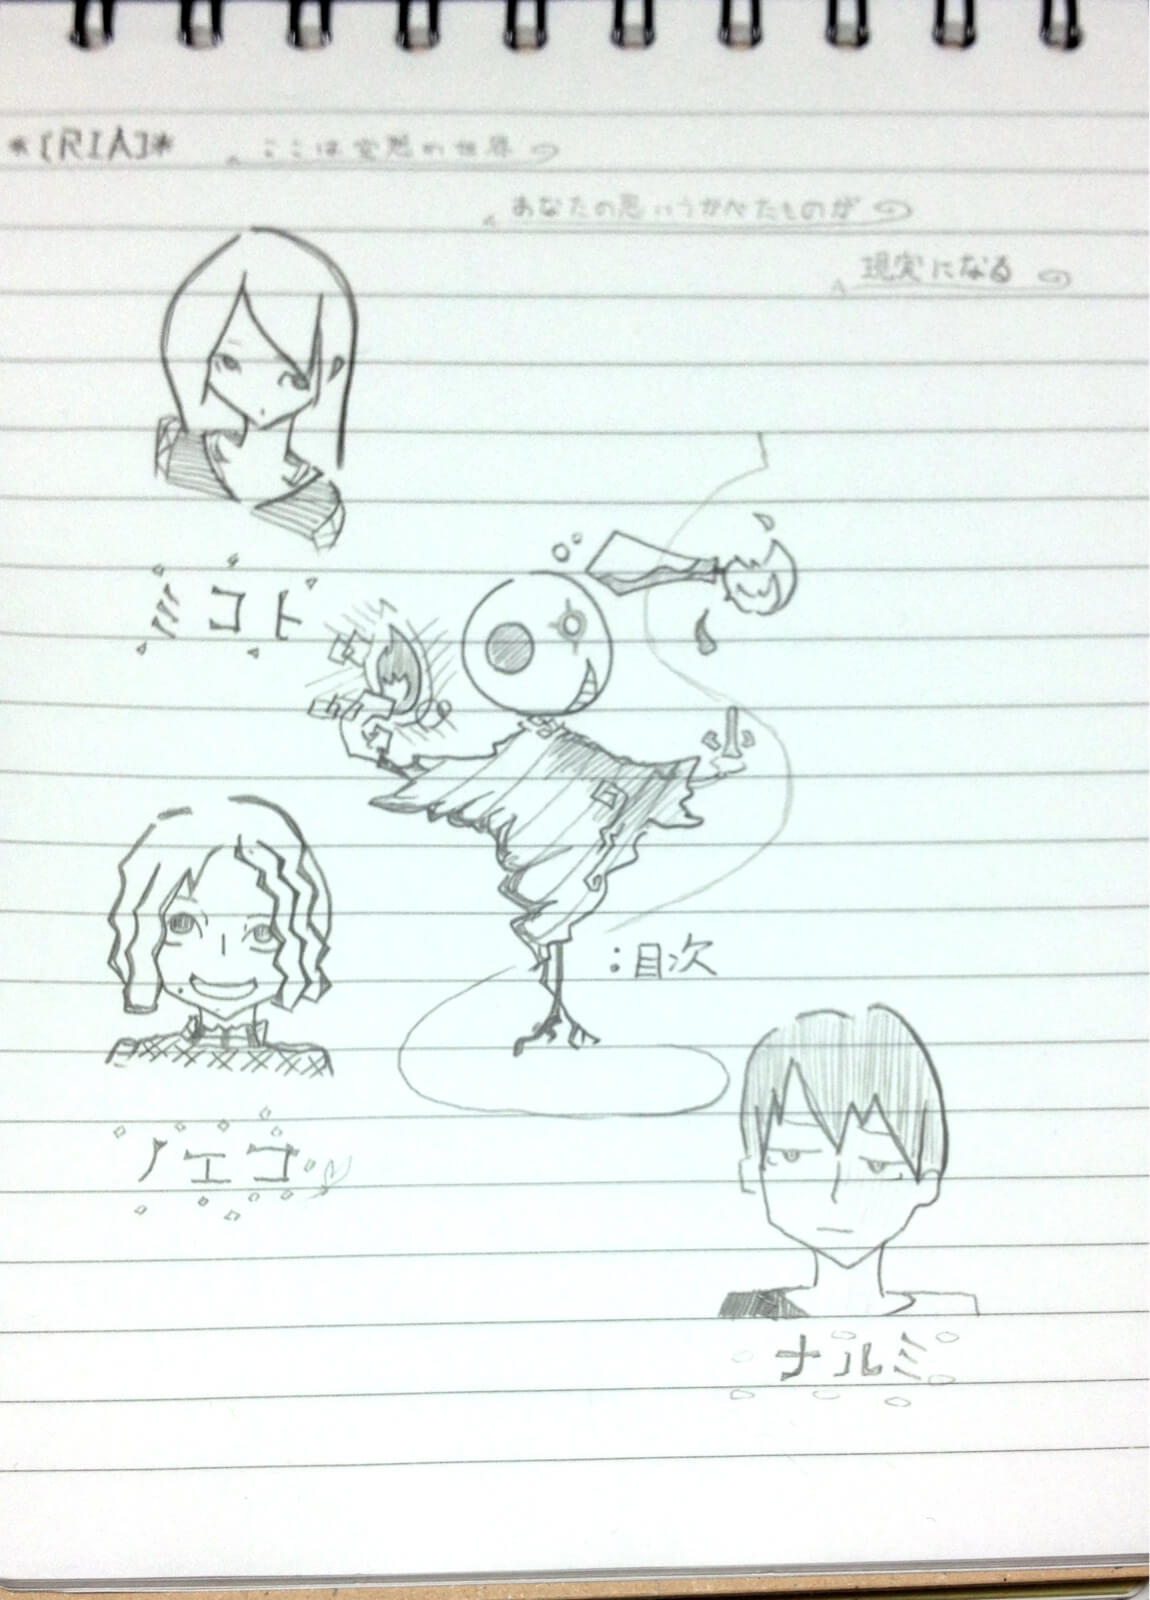 *[RIA]* ここは空想の世界
あなたの思いうかべたものが
現実になる
ミコト
:目次
ノエコ
ナルミ